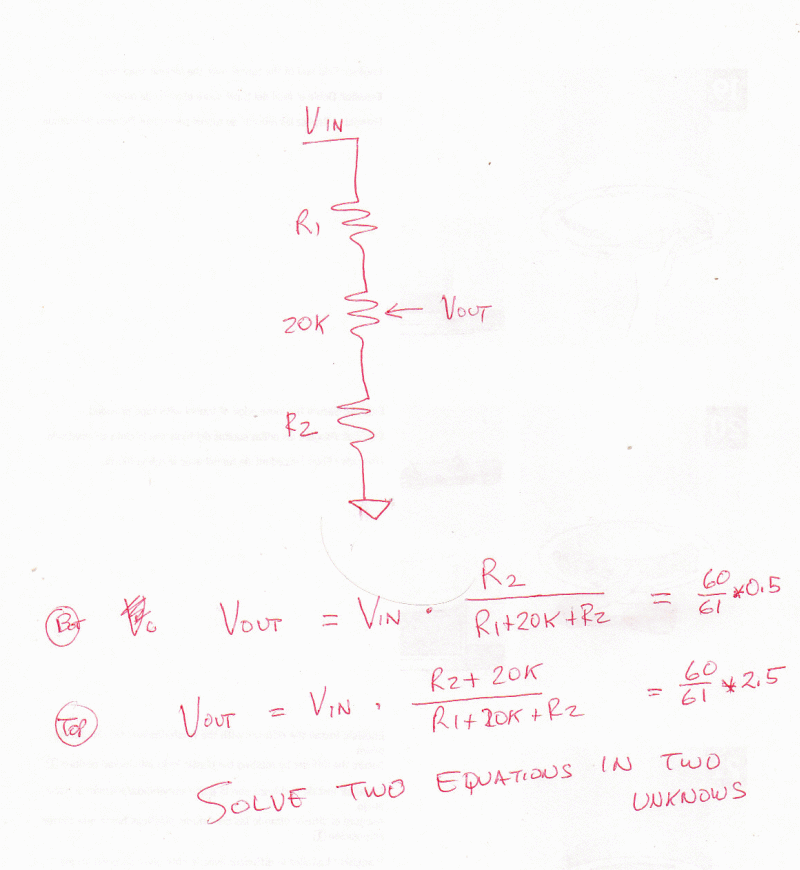 VIN
R1
20K
VOUT
R2
Bot VOUT = VIN · R2 / (R1+20K+R2) = 60/61 *0.5
TOP VOUT = VIN · (R2+20K) / (R1+20K+R2) = 60/61 *2.5
SOLVE TWO EQUATIONS IN TWO
UNKNOWS